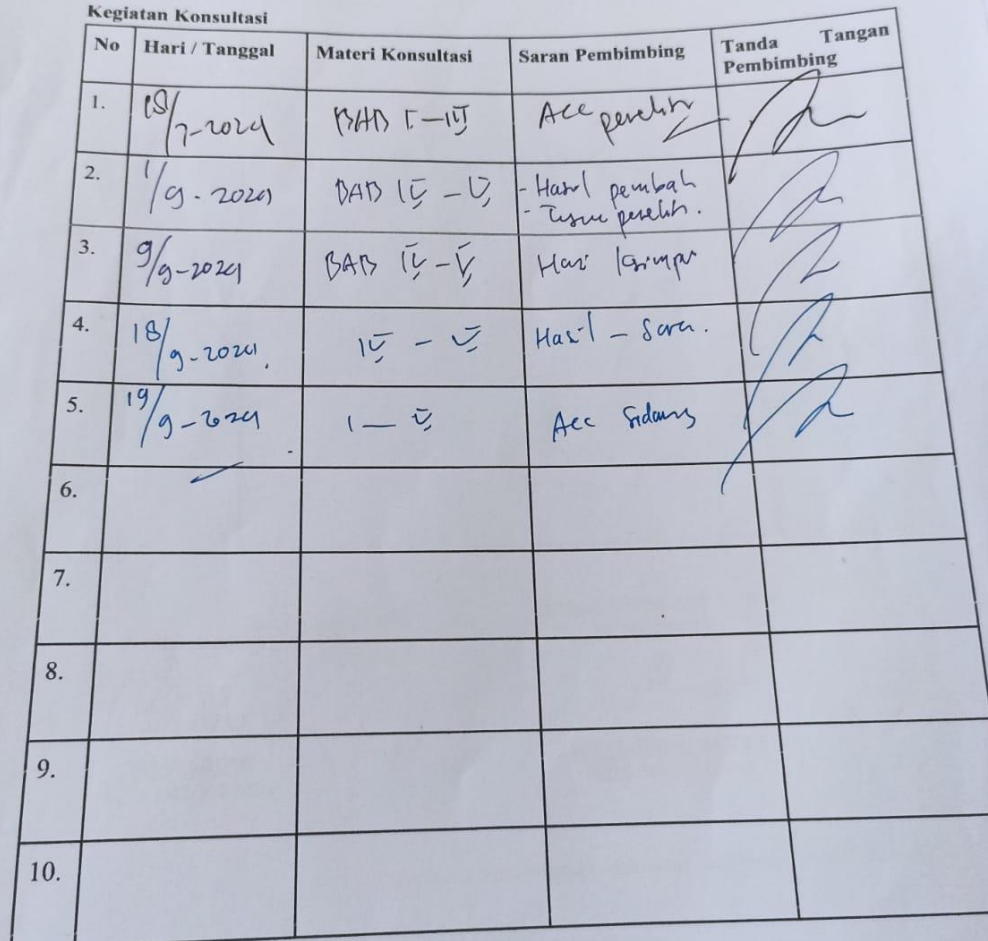 Kegiatan Konsultasi
No Hari / Tanggal Materi Konsultasi Saran Pembimbing Tanda Tangan
Pembimbing
1. 18/7-2024 BAB I-III Acc
2. 1/9-2024 BAB IV - V - Hasil pembah
-
3. 9/9-2024 BAB IV-V
4. 18/9-2024. IV - V Hasil - Saran.
5. 19/9-2024 I - V Acc Sidang
6.
7.
8.
9.
10.